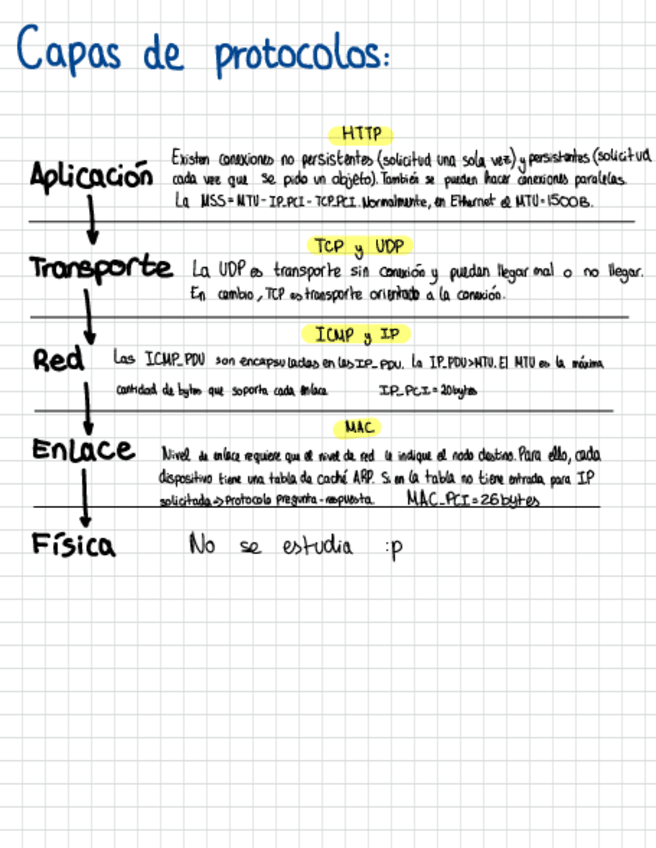 Capas de protocolos:
HTTP
Aplicación
Existen conexiones no persistentes (solicitud una sola vez) y persistentes (solicitud
cada vez que se pide un objeto). También se pueden hacer conexiones paralelas.
La MSS = MTU - IP_PCI - TCP_PCI. Normalmente, en Ethernet el MTU = 1500B.
TCP y UDP
Transporte
La UDP es transporte sin conexión y pueden llegar mal o no llegar.
En cambio, TCP es transporte orientado a la conexión.
ICMP y IP
Red
Las ICMP_PDU son encapsuladas en las IP_PDU. La IP_PDU>MTU. El MTU es la máxima
cantidad de bytes que soporta cada enlace. IP_PCI = 20bytes
MAC
Enlace
Nivel de enlace requiere que el nivel de red le indique el nodo destino. Para ello, cada
dispositivo tiene una tabla de caché ARP. Si en la tabla no tiene entrada para IP
solicitada => Protocolo pregunta-respuesta. MAC_PCI = 26 bytes
Física
No se estudia :p